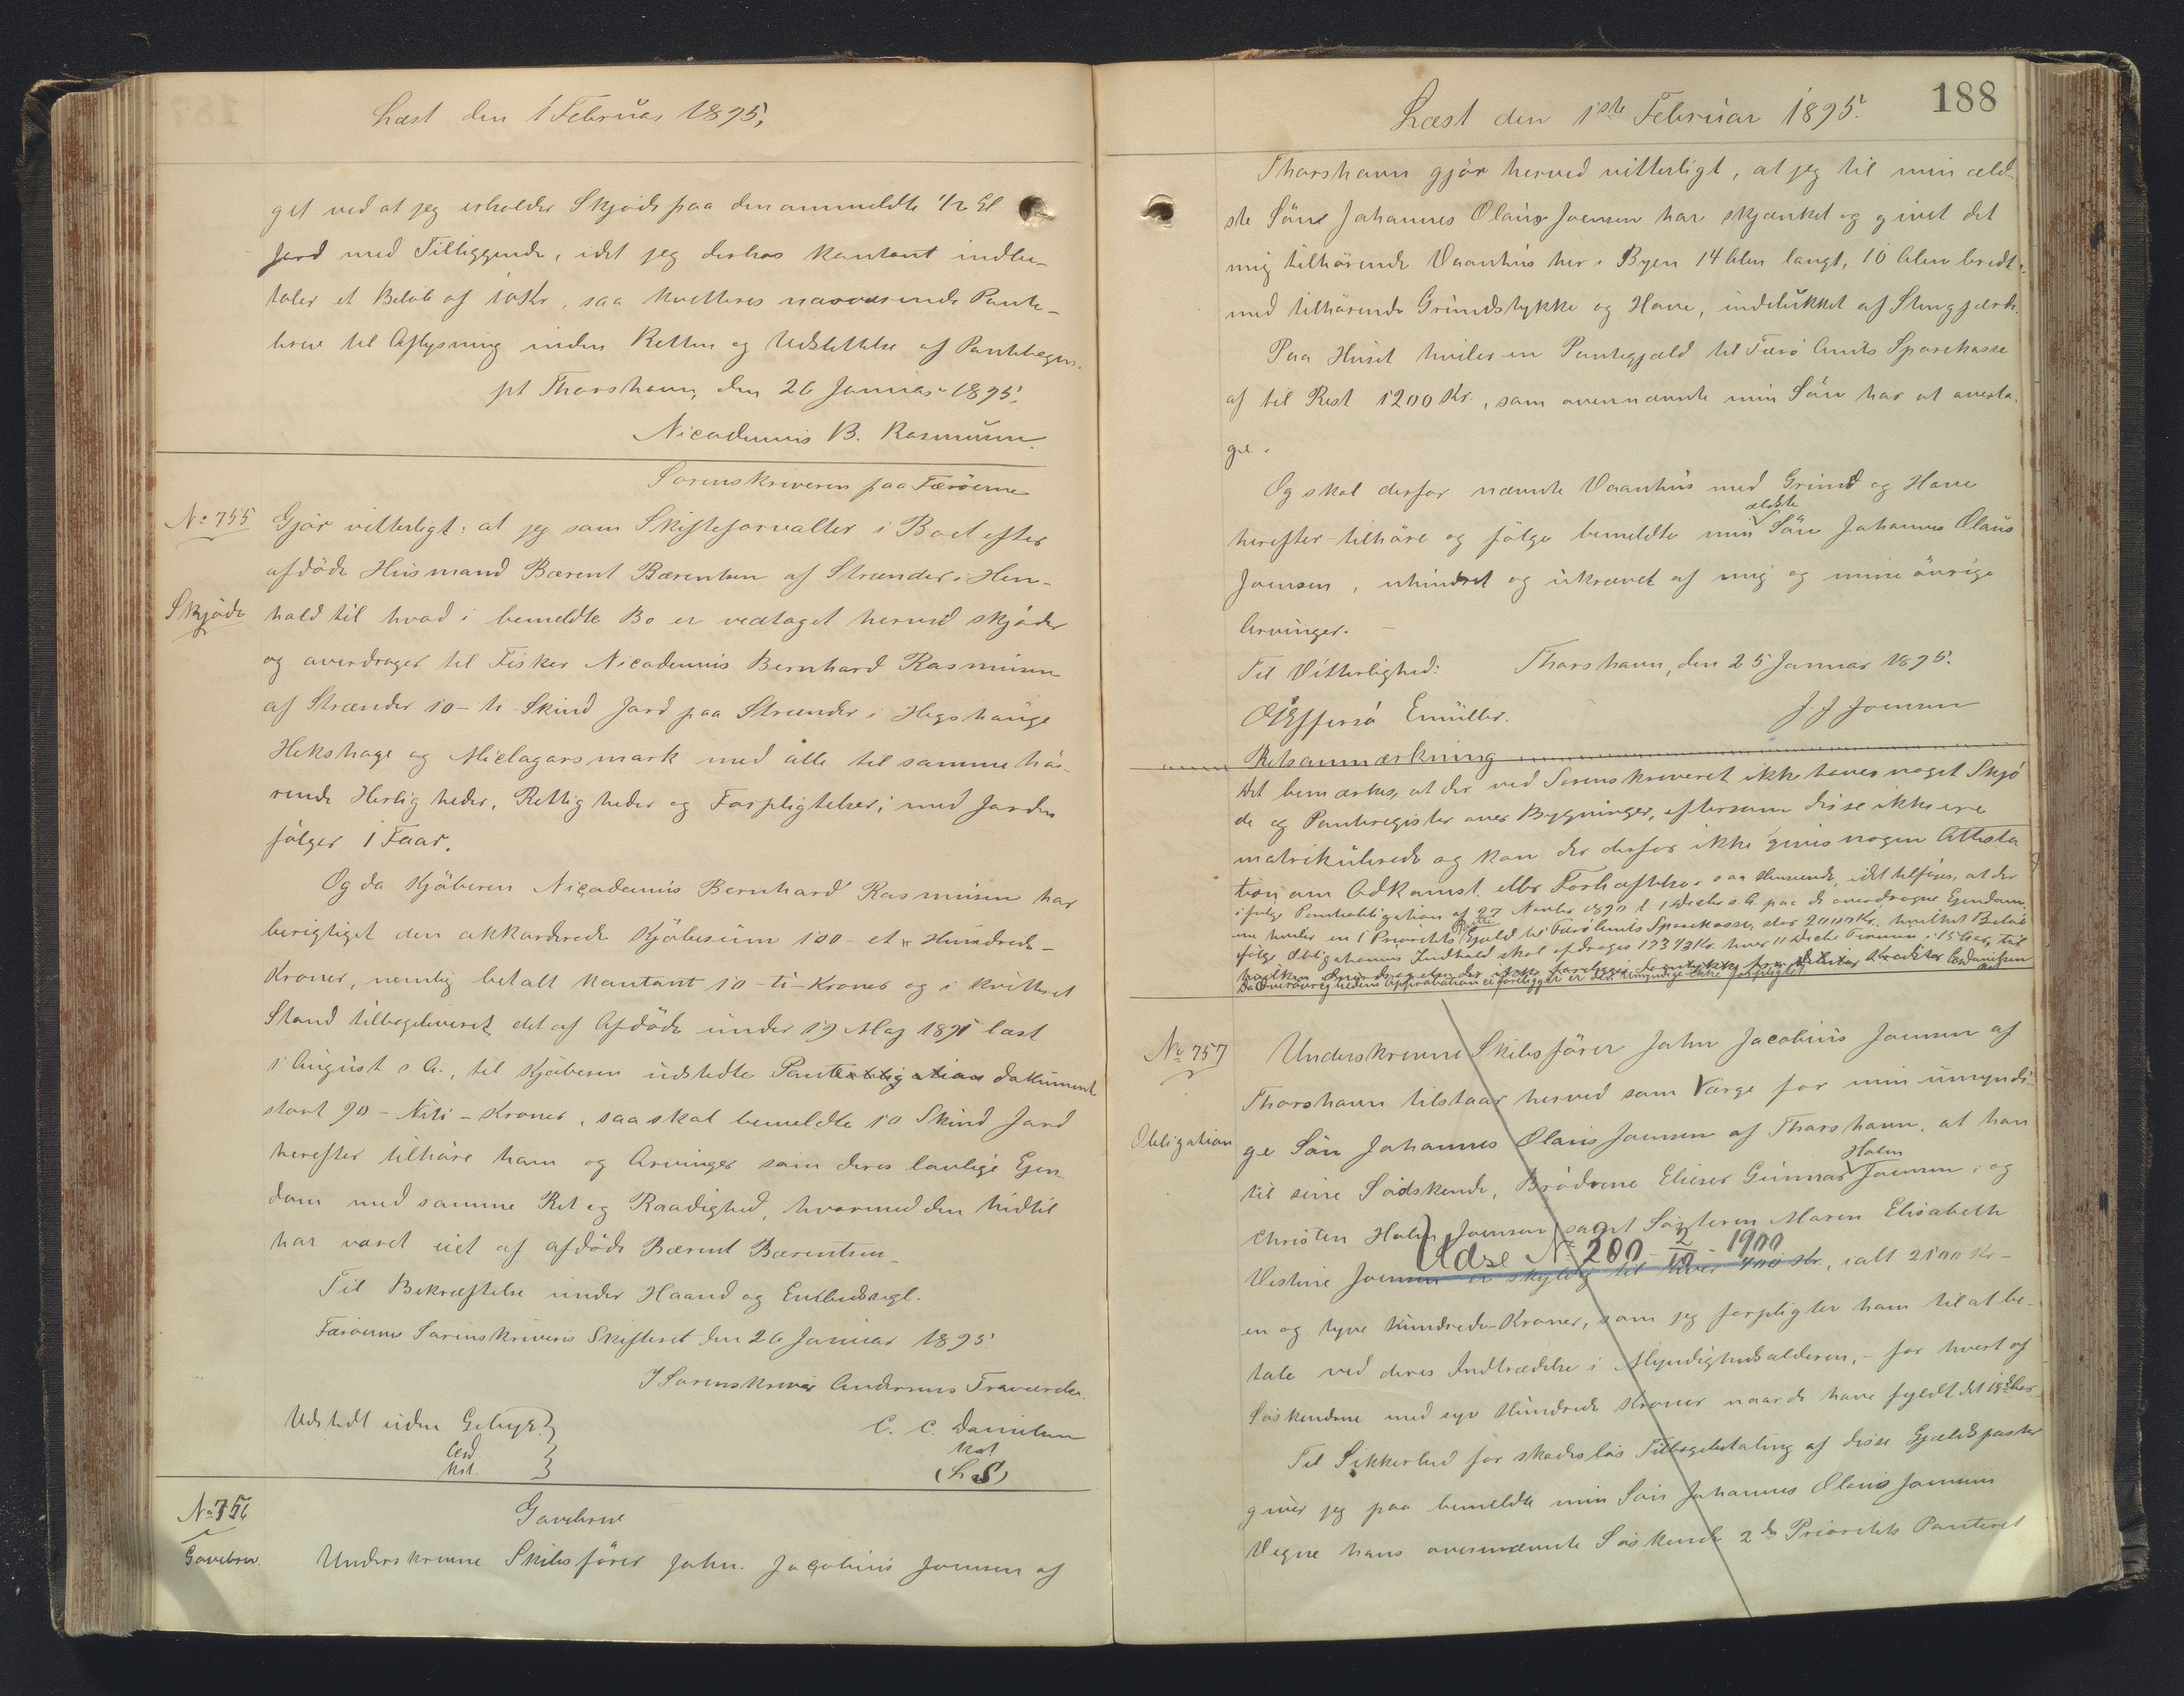 Læst den 1 Februar 1895,
get ved at jeg erholder Skjøde paa den anmeldte 1/2 Gl
Jord med Tilliggende, idet jeg derhos kontant indbe-
taler et Beløb af 10 Kr, saa kvitteres nærværende Pante-
brev til Aflysning inden Retten og Udslettelse af Pantebogen.
pt Thorshavn, den 26 Januar 1895.
Nicodemus B. Rasmusen.
Sorenskriveren paa Færøerne
No 755 Gjør vitterligt: at jeg som Skifteforvalter i Boet efter
afdøde Husmand Bærent Bærentsen af Strænder i Hen-
Skjøde hold til hvad i bemeldte Bo er vedtaget herved skjøder
og overdrager til Fisker Nicodemus Bernhard Rasmusen
af Strænder 10 - ti Skind Jord paa Strænder i Hegshauge
Hekshage og Mielagarsmark med alle til samme hø-
rende Herligheder, Rettigheder og Forpligtelser; med Jorden
følger 1 Faar.
Og da Kjøberen Nicodemus Bernhard Rasmusen har
berigtiget den akkorderede Kjøbesum 100 - et Hundrede -
Kroner, nemlig betalt kontant 10 - ti - Kroner og i kvitteret
Stand tilbageleveret det af Afdøde under 19 Maj 1891 læst
1 August s A., til Kjøberen udstedte Panteobligation dokument
stort 90 - Niti - Kroner, saa skal bemeldte 10 Skind Jord
herefter tilhøre ham og Arvinger som deres lovlige Ejen
dom med samme Ret og Raadighed, hvormed den hidtil
har været eiet af afdøde Bærent Bærentsen.
Til Bekræftelse under Haand og Embedssegl.
Færøernes Sorenskriveris Skifteret den 26 Januar 1895.
I Sorenskriver Andersens Fraværelse.
Udstedt uden Gebyr. C. C. Danielsen
CCD Kst
Kst. (L S)
No 756 Gavebrev
Gavebrev. Underskrevne Skibsfører John. Jacobius Joensen af
188
Læst den 1ste Februar 1895.
Thorshavn gjør herved vitterligt, at jeg til min æld-
ste Søn Johannes Olaus Joensen har skjænket og givet det
mig tilhørende Vaanhus her i Byen 14 Alen langt, 10 Alen bredt
med tilhørende Grundstykke og Have, indelukket af Stengjærde.
Paa Huset hviler en Pantegjæld til Færø Amts Sparekasse
af til Rest 1200 Kr., som ovennævnte min Søn har at overta-
ge.
Og skal derfor nævnte Vaanhus med Grund og Have
ældste
herefter tilhøre og følge bemeldte min Søn Johannes Olaus
Joensen, uhindret og ukrævet af mig og mine øvrige
Arvinger. -
Til Vitterlighed: Thorshavn, den 25 Januar 1895.
Effersø Emüller. J. J. Joensen
Retsanmærkning
Det bemærkes, at der ved Sorenskriveret ikke haves noget Skjø
de og Panteregister over Bygninger, eftersom disse ikke ere
matrikulerede og kan der derfor ikke gives nogen Attesta
tion om Adkomst eller Forhæftelse saa henseende, idet tilføies, at der
ifølge Panteobligation af 27 Novbr 1890 l 1 Decbr s. A. paa de overdragne Ejendom
me hviler en 1 Prioritets Gjæld til Færø Amts Sparekasse, stor 2000 Kr. hvilket Beløb
ifølge Obligationens Indhold skal afdrages 133 1/3 Kr. hver 11 Decbr Termin i 15 Aar, til
Da Overøvrighedens Approbation ei foreligger er den umyndige ikke forpligtet.
No 757 Underskrevne Skibsfører John Jacobius Joensen af
Thorshavn tilstaar herved som Værge for min umyndi-
Obligation ge Søn Johannes Olaus Joensen af Thorshavn, at han
Holm
til sine Sødskende, Brødrene Elieser Gunnar Joensen, og
Christen Holm Joensen samt Søsteren Maren Elisabeth
Udse No 200 - 2/10 - 1900
Vestine Joensen er skyldig til hver 700 Kr., ialt 2100 Kr -
en og tyve Hundrede Kroner, som jeg forpligter ham til at be-
tale ved deres Indtrædelse i Myndighedsalderen, - for hvert af
Søskendene med syv Hundrede Kroner naar de have fyldt det 18de Aar
Til Sikkerhed for skadesløs Tilbagebetaling af disse Gjældsposter
giver jeg paa bemeldte min Søn Johannes Olaus Joensens
Vegne hans ovennævnte Søskende 2den Prioritets Panteret